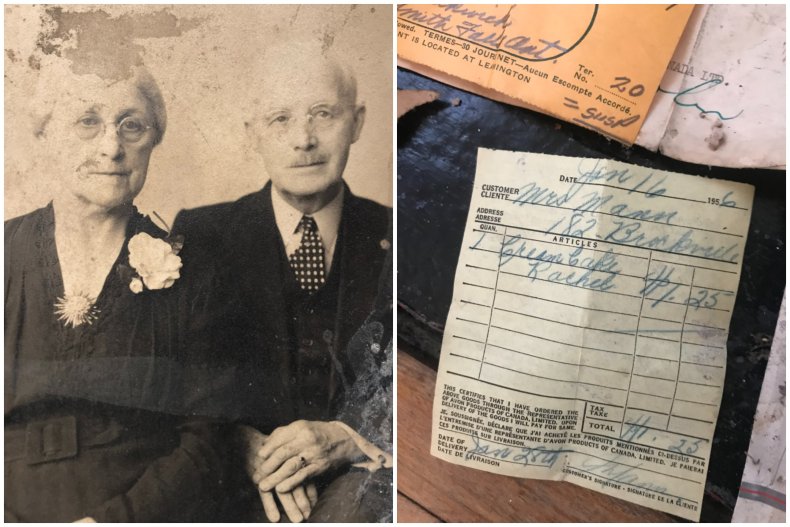 TERMES—30 JOUR NET—Aucun Escompte Accordé.
ANT IS LOCATED AT LEMINGTON
Ter.
No. 20
= SUSP
NADA LTD.
DATE Jan 16 1956
CUSTOMER
CLIENTE Mrs Mann
ADDRESS
ADRESSE 182 Brockville
QUAN. ARTICLES
1 Cream Cake $1.25
Rachel
THIS CERTIFIES THAT I HAVE ORDERED THE
ABOVE GOODS THROUGH THE REPRESENTATIVE
OF AVON PRODUCTS OF CANADA, LIMITED. UPON
DELIVERY OF THE GOODS I WILL PAY FOR SAME.
TAX
TAXE
TOTAL $1.25
JE, SOUSSIGNÉE, DÉCLARE QUE J'AI ACHETÉ LES PRODUITS MENTIONNÉS CI-DESSUS PAR
L'ENTREMISE D'UNE REPRÉSENTANTE D'AVON PRODUCTS OF CANADA, LIMITED. JE PAIERAI
CES PRODUITS SUR LIVRAISON.
DATE OF
DELIVERY Jan 25th
DATE DE LIVRAISON
CUSTOMER'S SIGNATURE - SIGNATURE DE LA CLIENTE